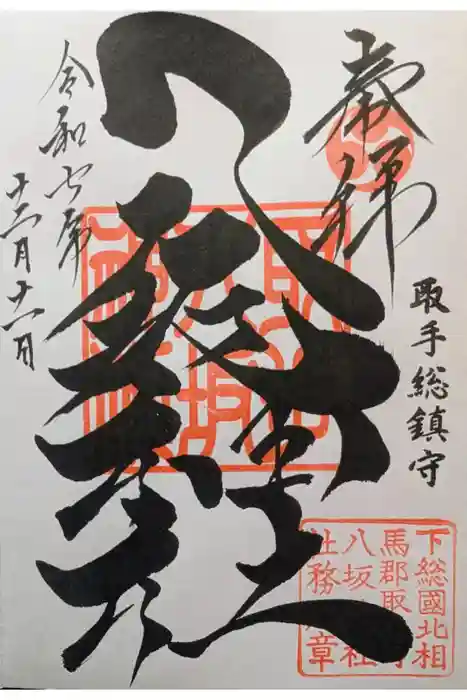 奉拝
取手総鎮守
八坂神社
令和七年
十二月十一日
下総國北相
馬郡取
八坂社
社務章